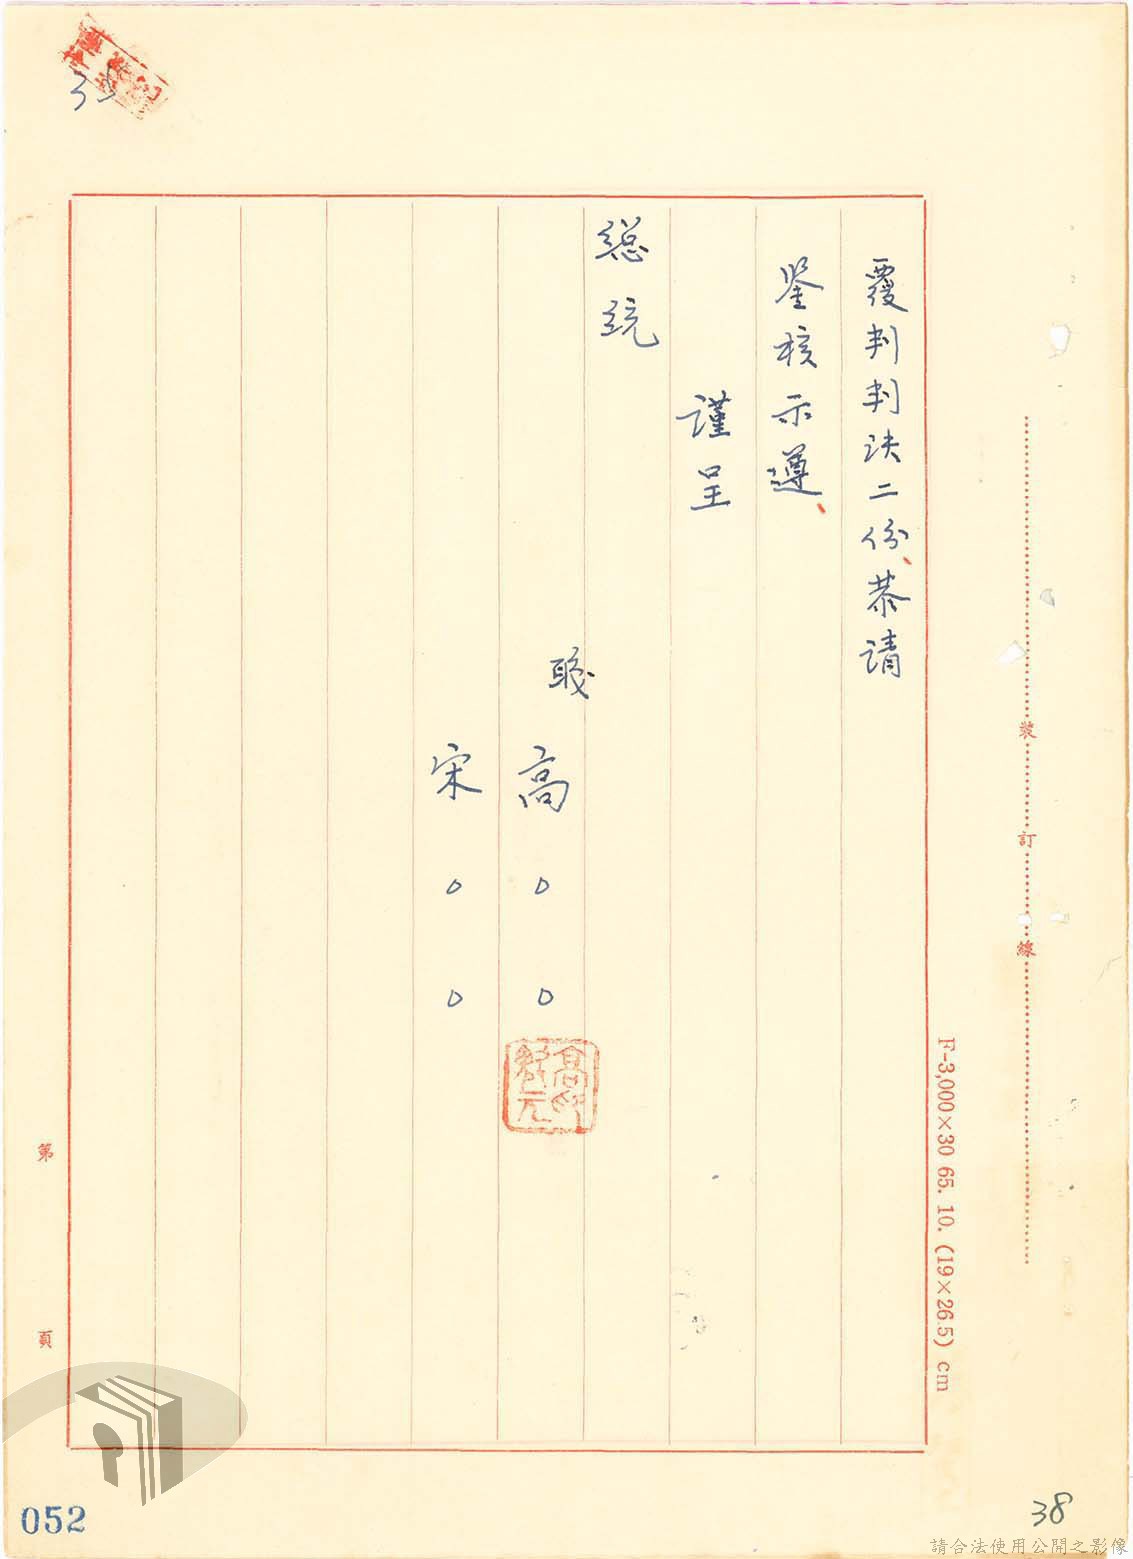 覆判判决二份、恭請
鋻核示遵、
謹呈
總統
職
高○○
宋○○
高印
元
裝
訂
線
F-3,000×30 65. 10. (19×26.5) cm
第
頁
052
38
請合法使用公開之影像